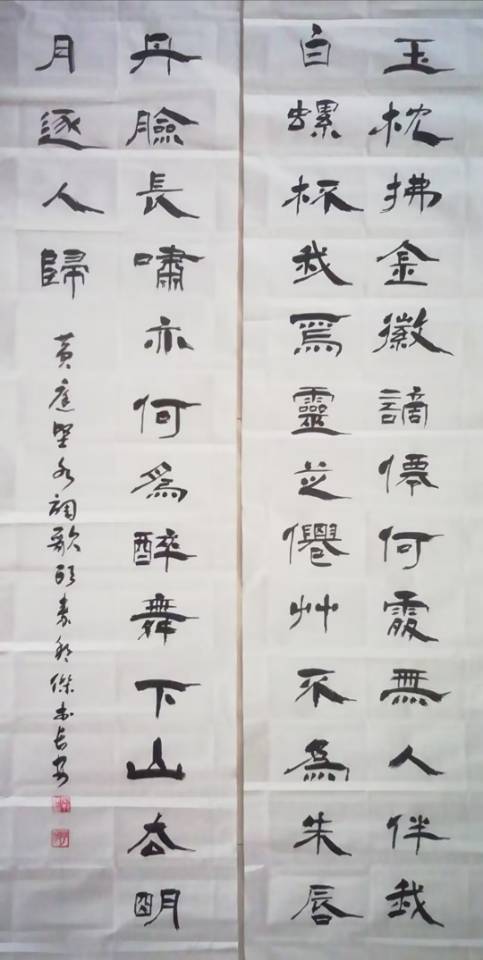 玉枕拂金徽謫僊何處無人伴我
白螺杯我爲靈芝僊艸不爲朱唇
丹臉長嘯亦何爲醉舞下山去明
月逐人歸
黃庭堅水調歌頭 傑書長安